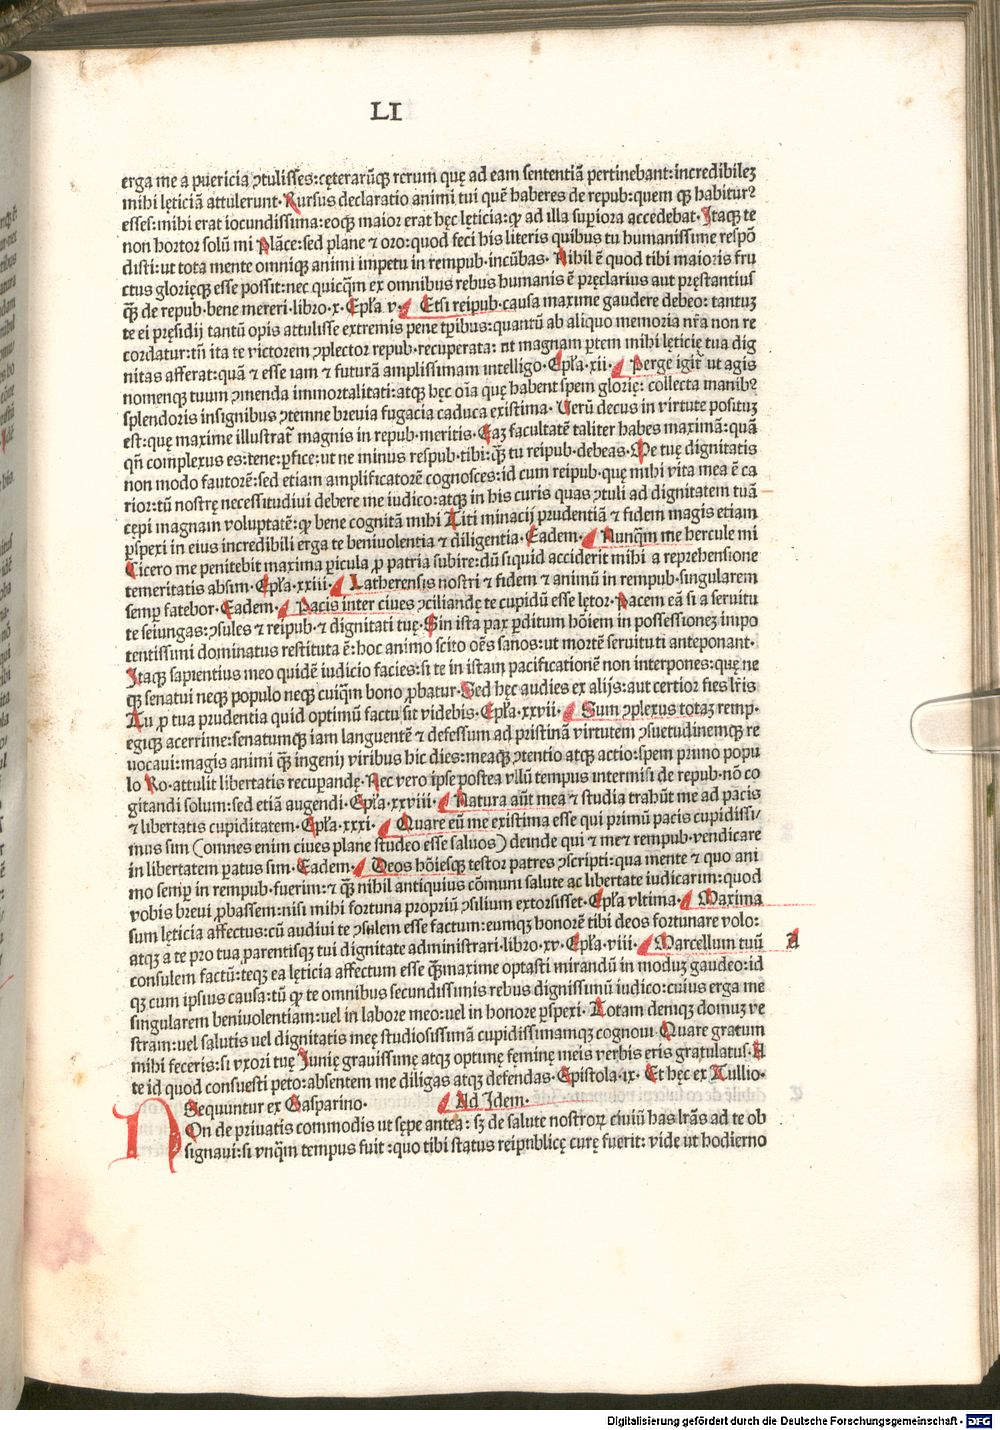 LI
erga me a puericia ꝯtulisses:cęterarūqꝫ rerum quę ad eam sententiā pertinebant:incredibileꝫ
mihi lęticiā attulerunt· Rursus declaratio animi tui quē haberes de repub:quem qꝫ habitur⁹
esses:mihi erat iocundissima:eoqꝫ maior erat hęc lęticia:ꝙ ad illa supiora accedebat· Itaqꝫ te
non hortor solū mi Plāce:sed plane ⁊ oro:quod feci his literis quibus tu humanissime respō
disti:ut tota mente omniqꝫ animi impetu in rempub·incūbas· Nihil ē quod tibi maioris fru
ctus glorięqꝫ esse possit:nec quicqm̄ ex omnibus rebus humanis ē pręclarius aut pręstantius
qꝫ̄ de repub·bene mereri·libro·x· Epľa v· Etsi reipub·causa maxime gaudere debeo: tantuꝫ
te ei pręsidij tantū opis attulisse extremis pene tpibus:quantū ab aliquo memoria nr̄a non re
cordatur:tn̄ ita te victorem ꝯplector repub·recuperata: ut magnam ꝑtem mihi lęticię tua dig
nitas afferat:quā ⁊ esse iam ⁊ futurā amplissimam intelligo· Epľa·xii· Perge igit᷑ ut agis
nomenqꝫ tuum ꝯmenda immortalitati:atqꝫ hęc oīa quę habent spem glorię: collecta manib⁹
splendoris insignibus ꝯtemne brevia fugacia caduca existima· Verū decus in virtute posituꝫ
est:que maxime illustrat᷑ magnis in repub·meritis· Eaꝫ facultatē taliter habes maximā:quā
qn̄ complexus es:tene:ꝑfice:ut ne minus respub·tibi:qꝫ̄ tu reipub·debeas· Me tuę dignitatis
non modo fautorē:sed etiam amplificatorē cognosces:id cum reipub·quę mihi vita mea ē ca
rior:tū nostrę necessitudiui debere me iudico:atqꝫ in his curis quas ꝯtuli ad dignitatem tuā
cępi magnam voluptatē:ꝙ bene cognitā mihi Titi minacij prudentiā ⁊ fidem magis etiam
ꝑspexi in eius incredibili erga te beniuolentia ⁊ diligentia· Eadem· Nunqm̄ me hercule mi
Cicero me penitebit maxima ꝑicula ꝓ patria subire:dū siquid acciderit mihi a reprehensione
temeritatis absim· Epľa·xxiii· Latherensis nostri ⁊ fidem ⁊ animū in rempub·singularem
semp fatebor· Eadem· Pacis inter ciues ꝯciliandę te cupidū esse lętor· Pacem eā si a seruitu
te seiungas:ꝯsules ⁊ reipub·⁊ dignitati tuę· Sin ista pax ꝑditum hōiem in possessioneꝫ impo
tentissimi dominatus restituta ē:hoc animo scito oēs sanos:ut mortē seruituti anteponant·
Itaqꝫ sapientius meo quidē iudicio facies:si te in istam pacificationē non interpones:quę ne
qꝫ senatui neqꝫ populo neqꝫ cuiqm̄ bono ꝓbatur· Sed hęc audies ex alijs:aut certior fies lr̄is
Tu ꝓ tua prudentia quid optimū factu sit videbis· Epľa·xxvii· Sum ꝯplexus totaꝫ remp·
egiqꝫ acerrime:senatumqꝫ iam languentē ⁊ defessum ad pristinā virtutem ꝯsuetudinemqꝫ re
uocaui:magis animi qꝫ̄ ingenij viribus hic dies:meaqꝫ ꝯtentio atqꝫ actio:spem primo popu
lo Ro·attulit libertatis recupandę· Nec vero ipse postea vllū tempus intermisi de repub·nō co
gitandi solum:sed etiā augendi· Epľa·xxviii· Natura aūt mea ⁊ studia trahūt me ad pacis
⁊ libertatis cupiditatem· Epľa·xxxi· Quare eū me existima esse qui primū pacis cupidissi/
mus sim (omnes enim ciues plane studeo esse saluos) deinde qui ⁊ me⁊ rempub·vendicare
in libertatem patus sim· Eadem· Deos hōiesqꝫ testor patres ꝯscripti:qua mente ⁊ quo ani
mo semp in rempub·fuerim:⁊ qꝫ̄ nihil antiquius cōmuni salute ac libertate iudicarim:quod
vobis brevi ꝓbassem:nisi mihi fortuna propriū ꝯsilium extorsisset· Epľa vltima· Maxima
sum lęticia affectus:cū audiui te ꝯsulem esse factum:eumqꝫ honorē tibi deos fortunare volo:
atqꝫ a te pro tua parentisqꝫ tui dignitate administrari·libro·xv· Epľa·viii· Marcellum tuū A
consulem factū:teqꝫ ea lęticia affectum esse qꝫ̄maxime optasti mirandū in moduꝫ gaudeo:id
qꝫ cum ipsius causa:tū ꝙ te omnibus secundissimis rebus dignissimū iudico:cuius erga me
singularem beniuolentiam:vel in labore meo:vel in honore ꝑspexi· Totam deniqꝫ domuꝫ ve
stram:uel salutis vel dignitatis meę studiosissimā cupidissimamqꝫ cognoui· Quare gratum
mihi feceris:si vxori tuę Iunię grauissimę atqꝫ optimę feminę meis verbis eris gratulatus· A
te id quod consuesti peto:absentem me diligas atqꝫ defendas· Epistola·ix· Et hęc ex Tullio·
Sequuntur ex Gasparino· Ad Idem·
NOn de priuatis commodis ut sępe antea: sꝫ de salute nostroꝝ ciuiū has lr̄as ad te ob
signaui:si vnqm̄ tempus fuit:quo tibi status reipublicę curę fuerit: vide ut hodierno
Digitalisierung gefördert durch die Deutsche Forschungsgemeinschaft - DFG